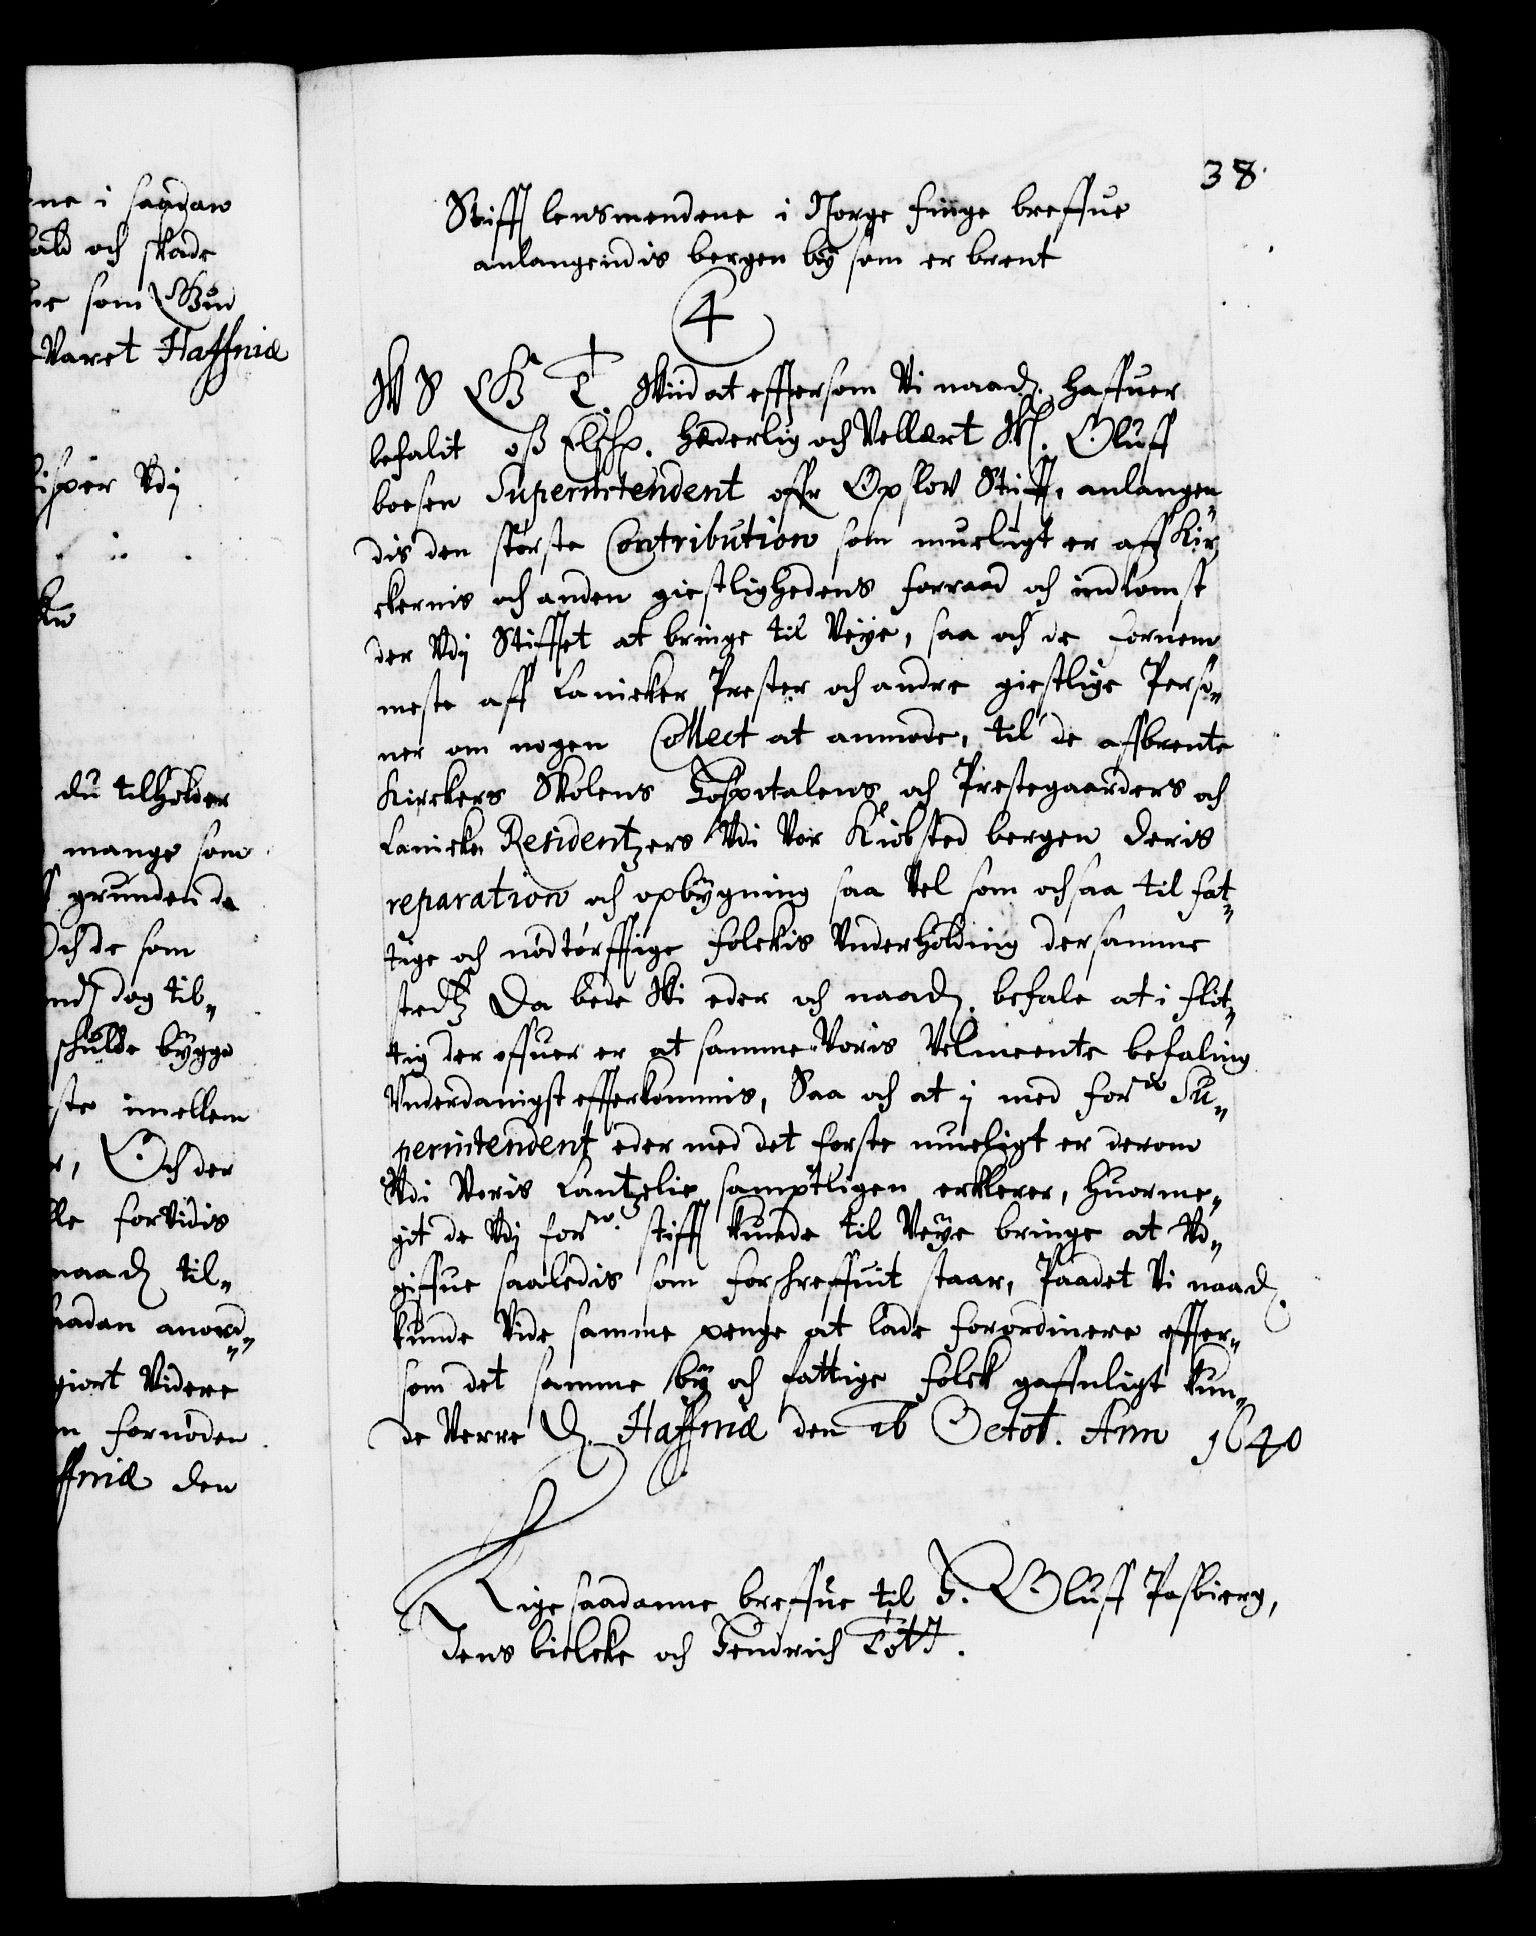 ne i saadan
ald och skade
ue som Gud
Varet Haffniæ
isper Vdj
du tilholder
mange som
grunden da
Och de som
dog til-
schulde bygge
ste imellem
Och der
le forVidis
naad. til-
aadan anord-
giort Videre
n fornøden
ffniæ den
38.
Stifft lensmendene i Norge finge breffue
anlangendis bergen by som er brent
4
W S G T. Wiid at effterom Vi naad. haffuer
befalit oß Elsch. Hæderlig och Vellært M. Oluff
boesen Superintendent offr Opslov Stifft, anlangen-
dis den største Contribution som mueligt er aff Kir-
ckernis och anden giestlighedens forraad och indkomst
der Vdj Stifftet at bringe til Veÿe, saa och de fornem
meste aff Canicker Prester och andre giestlige Perso-
ner om nogen Collect at anmode, til de affbrente
Kirckers Skolens Hospitalens och Prestegaarders och
Canicke Residentzers Vdi Vor Kiøbsted bergen deris
reparation och opbÿgning saa Vel som ochsaa til fat-
tige och nødtørfftige folckis Vnderholding dersamme
stedtz Da bede Wi eder och naad. befale at i flit-
tig der offuer er at samme Voris Velmeente befaling
Vnderdanigst effterkommis, Saa och at j med forne Su-
perintendent eder med det første mueligt er derom
Vdi Voris Cantzelie samptligen erklerer, huorme-
git de Vdj forne stifft kunde til Veÿe bringe at Vd-
giffue saaledis som forschreffuit staar, Paadet Vi naad.
kunde Vide samme penge at lade forordinere effter-
som det samme bÿ och fattige folck gaffnligt kun-
de Verre D. Haffniæ den 26 Octob. Ann 1640
Lige saadanne breffue til H. Oluff Pasbierg,
Jens bielcke och Hendrich Tott.